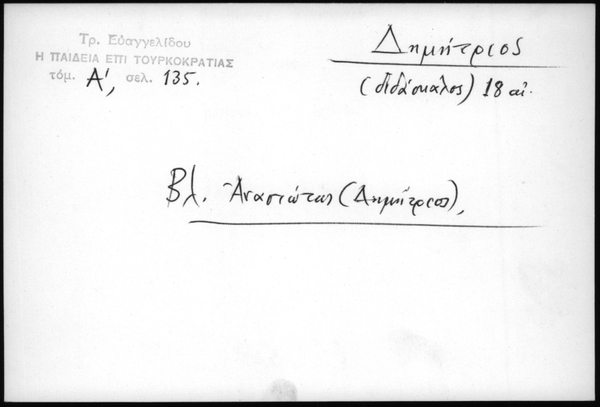 Τρ. Εὐαγγελίδου
Η ΠΑΙΔΕΙΑ ΕΠΙ ΤΟΥΡΚΟΚΡΑΤΙΑΣ
τόμ. Α', σελ. 135.
Δημήτριος
(διδάσκαλος) 18 αἰ.
Βλ. Ἀναστώτας (Δημήτριος),